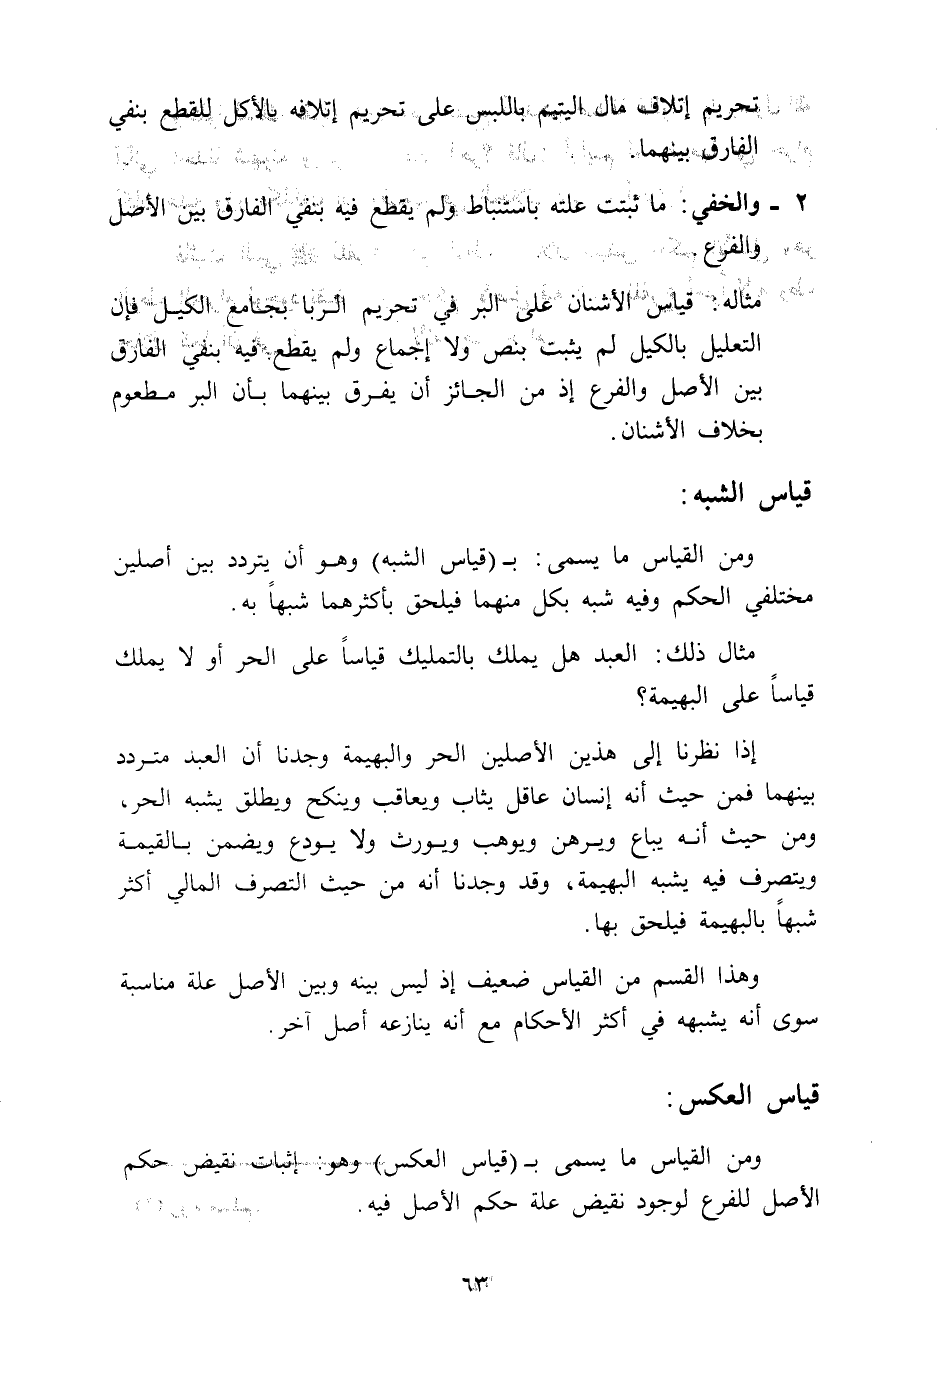 تحريم إتلاف مال اليتيم باللبس على تحريم إتلافه بالأكل للقطع بنفي
الفارق بينهما.
٢ ـ والخفي: ما ثبتت علته باستنباط ولم يقطع فيه بنفي الفارق بين الأصل
والفرع
مثاله: قياس الأشنان على البر في تحريم الربا بجامع الكيل فإن
التعليل بالكيل لم يثبت بنص ولا إجماع ولم يقطع فيه بنفي الفارق
بين الأصل والفرع إذ من الجائز أن يفرق بينهما بأن البر مطعوم
بخلاف الأشنان.
قياس الشبه:
ومن القياس ما يسمى: بـ (قياس الشبه) وهو أن يتردد بين أصلين
مختلفي الحكم وفيه شبه بكل منهما فيلحق بأكثرهما شبهاً به.
مثال ذلك: العبد هل يملك بالتمليك قياساً على الحر أو لا يملك
قياساً على البهيمة؟
إذا نظرنا إلى هذين الأصلين الحر والبهيمة وجدنا أن العبد متردد
بينهما فمن حيث أنه إنسان عاقل يثاب ويعاقب وينكح ويطلق يشبه الحر،
ومن حيث أنه يباع ويرهن ويوهب ويورث ولا يودع ويضمن بالقيمة
ويتصرف فيه يشبه البهيمة، وقد وجدنا أنه من حيث التصرف المالي أكثر
شبهاً بالبهيمة فيلحق بها.
وهذا القسم من القياس ضعيف إذ ليس بينه وبين الأصل علة مناسبة
سوى أنه يشبهه في أكثر الأحكام مع أنه ينازعه أصل آخر.
قياس العكس:
ومن القياس ما يسمى بـ (قياس العكس) وهو: إثبات نقيض حكم
الأصل للفرع لوجود نقيض علة حكم الأصل فيه.
٦٣